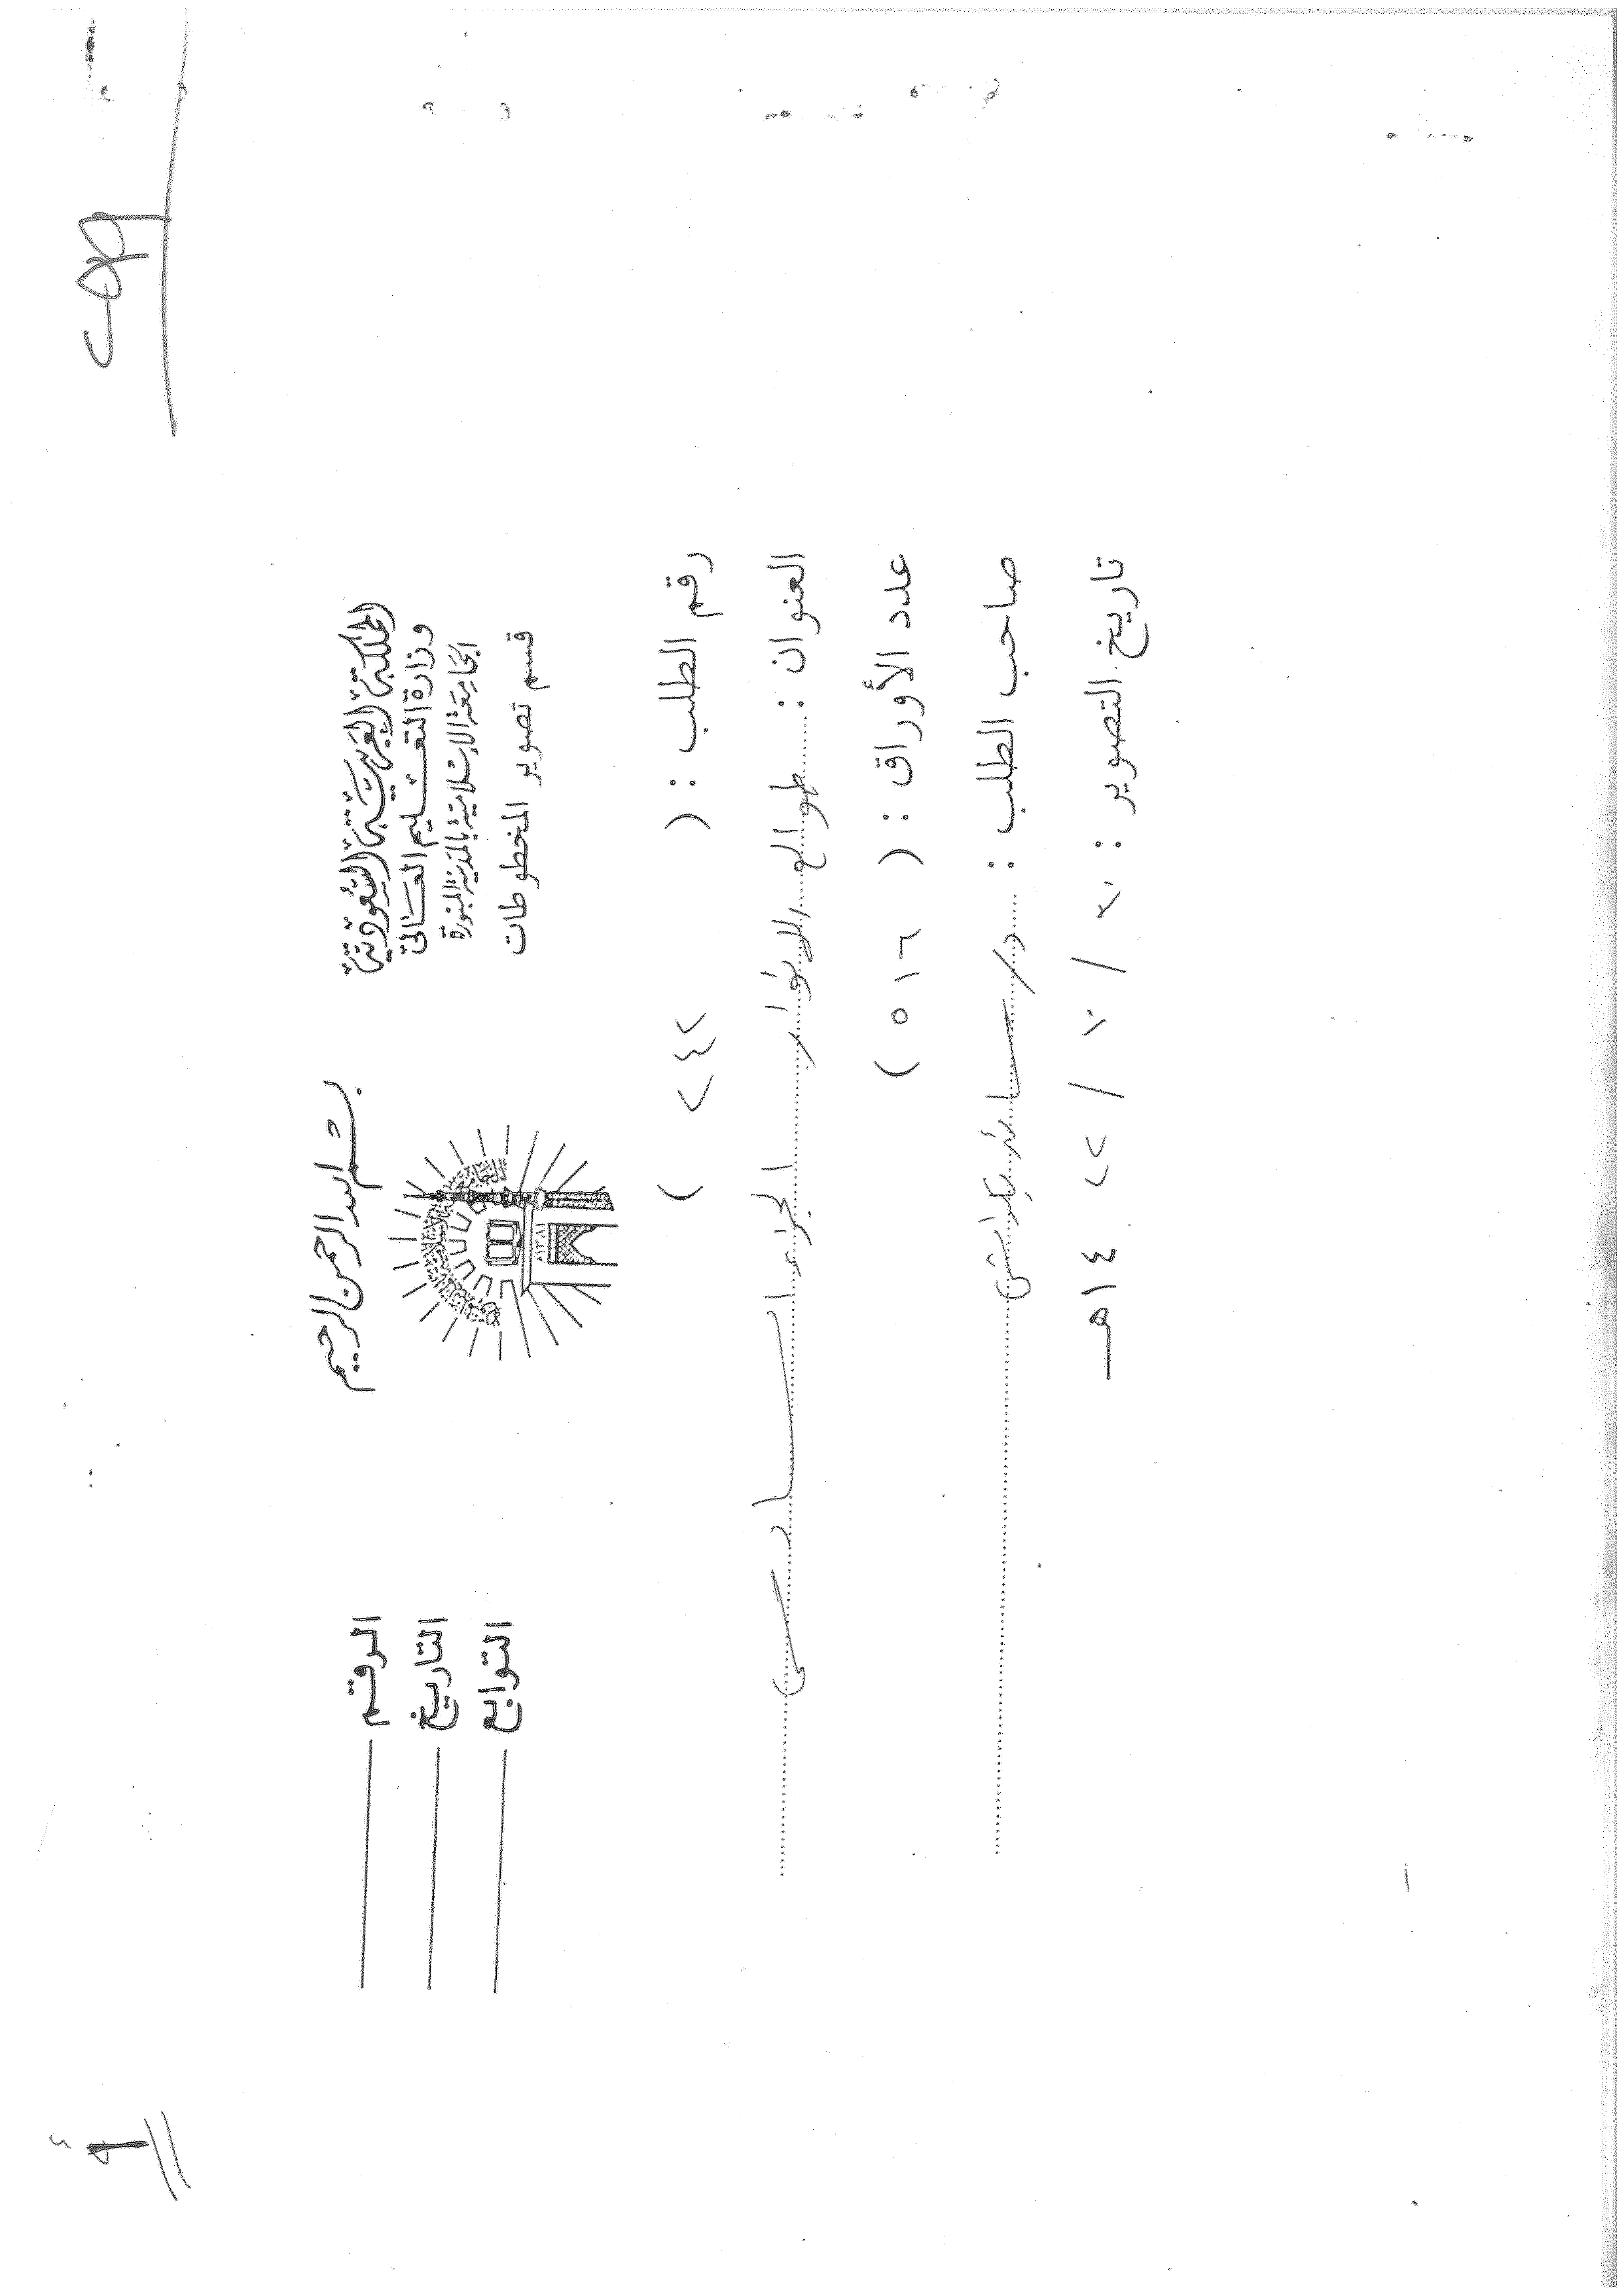 بسم الله الرحمن الرحيم
المملكة العربية السعودية
وزارة التعليم العالي
الجامعة الإسلامية بالمدينة المنورة
قسم تصوير المخطوطات
الرقم
التاريخ
التوابع
رقم الطلب : ( ٢٤٢ )
العنوان : طوالع الأنوار الجزء السادس
عدد الأوراق : ( ٥١٦ )
صاحب الطلب : د / سائد بكداش
تاريخ التصوير : / ٧ / ١٤٢٢هـ